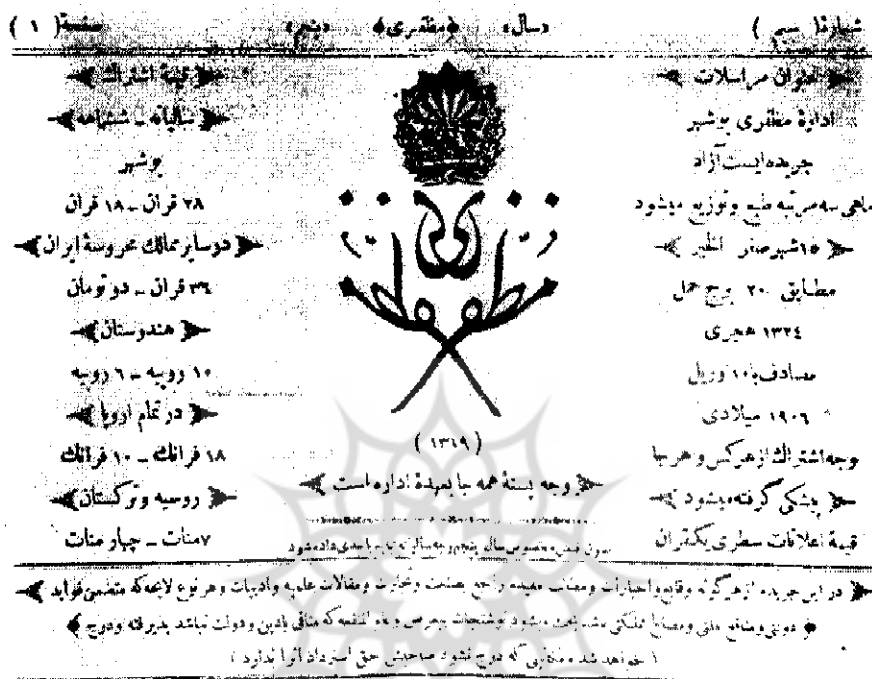 شمارهٔ سیم ) «سال» ﴿مظفری﴾ «پنجم» صفحهٔ ( ۱ )
﴿ عنوان مراسلات ﴾
ادارهٔ مظفری بوشهر
جریده‌ایست آزاد
ماهی سه مرتبه طبع و توزیع میشود
﴿ ۱۵ شهر صفر الخیر ﴾
مطابق ۲۰ برج حمل
۱۳۲٤ هجری
مصادف با ۱۰ وریل
۱۹۰٦ میلادی
وجه اشتراك از هرکس و هرجا
﴿ پیشکی گرفته میشود ﴾
قیمة اعلانات سطری یکقران
مظفری
( ۱۳۱۹ )
﴿ وجه پستهٔ همه جا بعهدهٔ اداره است ﴾
بدون قیمت مخصوص سال پنجم
﴿ قیمة اشتراك ﴾
﴿ سالیانه ـ ششماهه ﴾
بوشهر
۲۸ قران ـ ۱۸ قران
﴿ در سایر ممالك محروسهٔ ایران ﴾
۳٤ قران ـ دو تومان
﴿ هندوستان ﴾
۱۰ روپیه ـ ٦ روپیه
﴿ در تمام اروپا ﴾
۱۸ فرانك ـ ۱۰ فرانك
﴿ روسیه و ترکستان ﴾
۷ منات ـ چهار منات
﴿ در این جریده از هرگونه وقایع و اخبارات و مطالب مفیده راجع بصنعت و تجارت و مقالات علمیه و ادبیات و هر نوع لایحه که متضمن فواید ﴾
﴿ دولتی و منافع ملی و مصالح مملکتی بحث میشود نوشتجات که منافی بادین و دولت نباشد پذیرفته و درج ﴾
( خواهد شد که درج نشود صاحبش حق استرداد آنرا ندارد )